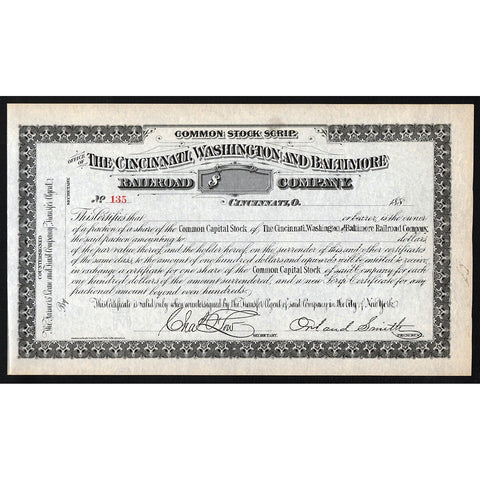 COMMON STOCK SCRIP.
OFFICE OF
THE CINCINNATI, WASHINGTON AND BALTIMORE
RAILROAD $ COMPANY.
No 135 CINCINNATI, O. 188
This Certifies that or bearer, is the owner
of a fraction of a share of the Common Capital Stock of The Cincinnati, Washington and Baltimore Railroad Company,
the said fraction amounting to dollars
of the par value thereof, and the holder hereof, on the surrender of this and other certificates
of the same class, to the amount of one hundred dollars and upwards will be entitled to receive,
in exchange a certificate for one share of the Common Capital Stock of said Company for each
one hundred dollars of the amount surrendered, and a new Scrip Certificate for any
fractional amount beyond even hundreds.
This Certificate is valid only when countersigned by the Transfer Agent of said Company in the City of New York.
SECRETARY.
Orland Smith
PRESIDENT.
COUNTERSIGNED
The Farmers Loan and Trust Company, Transfer Agent,
By
SECRETARY.